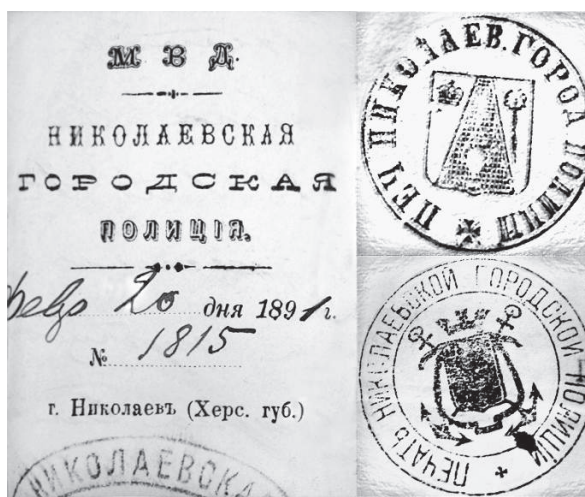 М В Д.
НИКОЛАЕВСКАЯ
ГОРОДСКАЯ
ПОЛИЦІЯ.
20 дня 1891 г.
№ 1815
г. Николаевъ (Херс. губ.)
НИКОЛАЕВСКА
ПЕЧ НИКОЛАЕВ. ГОРОД ПОЛИЦІИ
ПЕЧАТЬ НИКОЛАЕВСКОЙ ГОРОДСКОЙ ПОЛИЦІИ